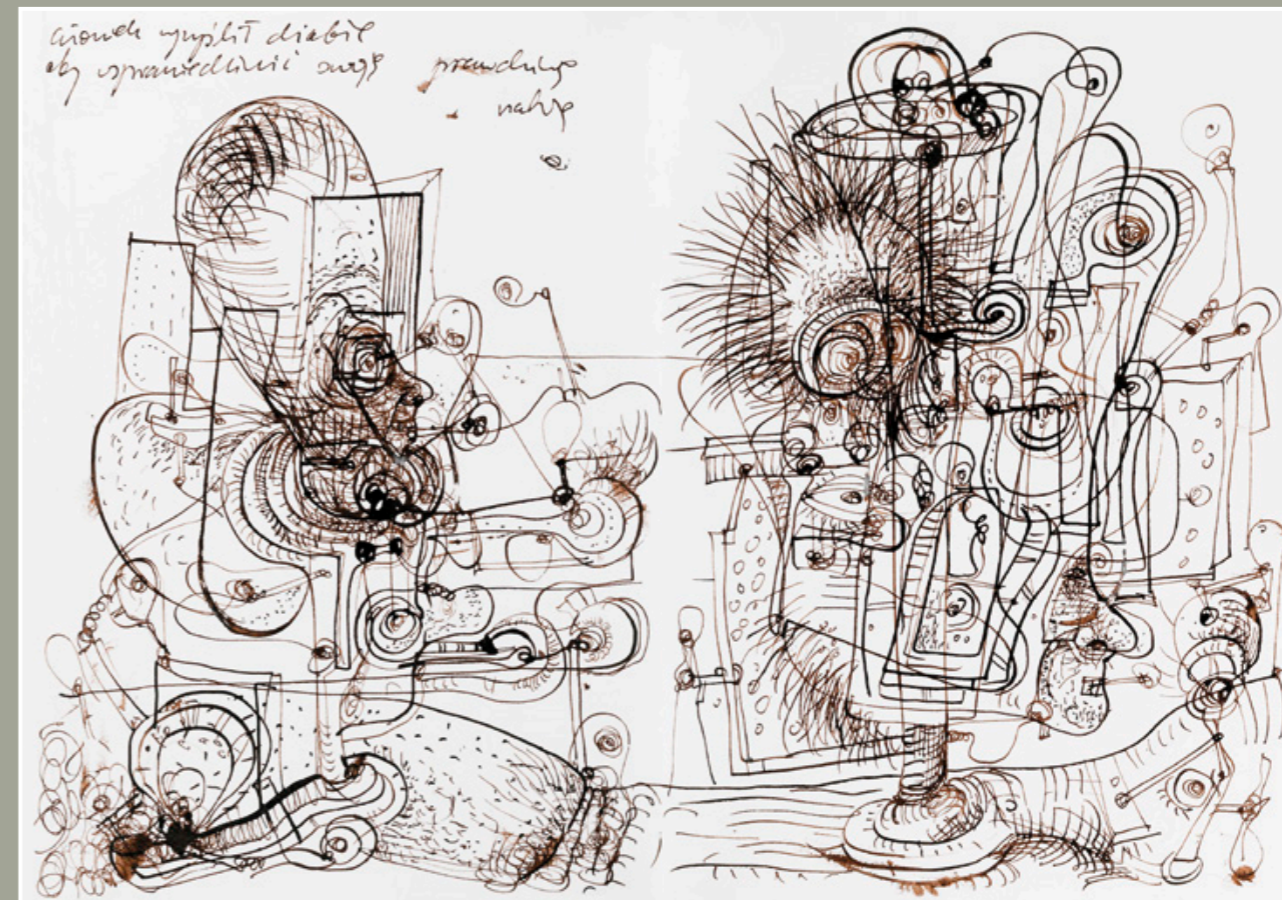 człowiek wymyślił diabła
aby usprawiedliwić swoją prawdziwą
naturę